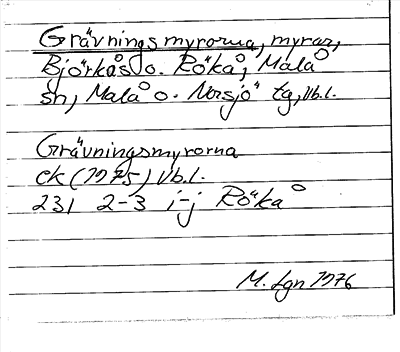 Grävningsmyrorna, myrar,
Björkås o. Rökå, Malå
sn, Malå o. Norsjö tg, Vb.l.
Grävningsmyrorna
ek (1975) Vb.l.
231 2-3 i-j Rökå
M. Lgn 1976